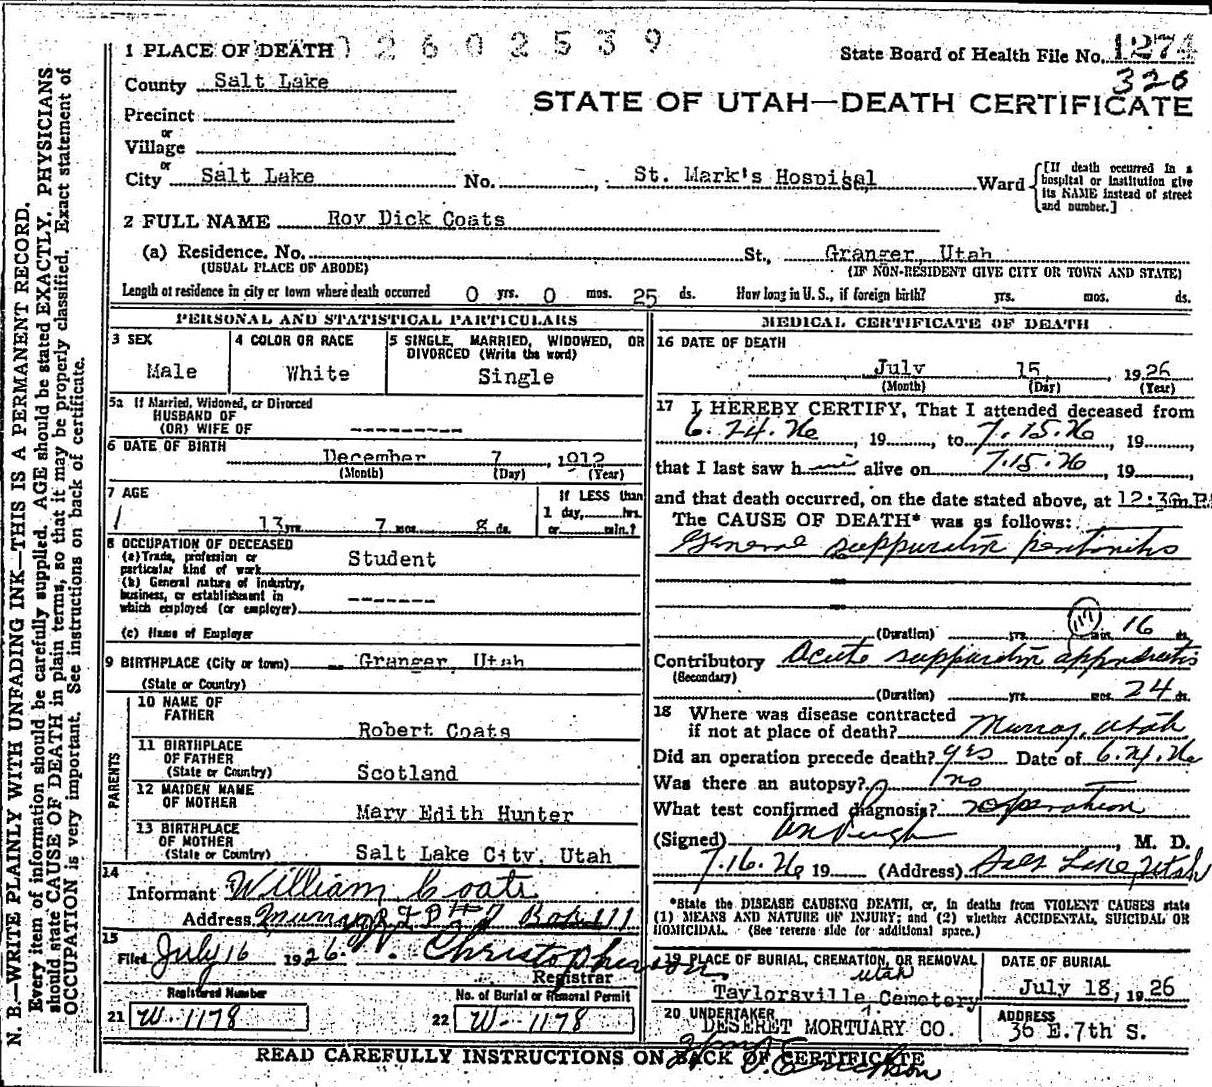 1 PLACE OF DEATH 0 2 6 0 2 5 3 9
State Board of Health File No. 1274
326
County Salt Lake
STATE OF UTAH—DEATH CERTIFICATE
Precinct
or
Village
or
City Salt Lake No. , St. Mark's Hospital St., Ward
[If death occurred in a hospital or institution give its NAME instead of street and number.]
2 FULL NAME Roy Dick Coats
(a) Residence. No. St., Granger, Utah
(USUAL PLACE OF ABODE) (IF NON-RESIDENT GIVE CITY OR TOWN AND STATE)
Length of residence in city or town where death occurred 0 yrs. 0 mos. 25 ds. How long in U. S., if foreign birth? yrs. mos. ds.
PERSONAL AND STATISTICAL PARTICULARS
3 SEX
Male
4 COLOR OR RACE
White
5 SINGLE, MARRIED, WIDOWED, OR
DIVORCED (Write the word)
Single
5a If Married, Widowed, or Divorced
HUSBAND OF
(OR) WIFE OF ---------
6 DATE OF BIRTH
December 7, 1912
(Month) (Day) (Year)
7 AGE
13 yrs. 7 mos. 8 ds.
If LESS than
1 day, hrs.
or min.?
8 OCCUPATION OF DECEASED
(a) Trade, profession or
particular kind of work Student
(b) General nature of industry,
business, or establishment in
which employed (or employer) -------
(c) Name of Employer
9 BIRTHPLACE (City or town) Granger, Utah
(State or Country)
PARENTS
10 NAME OF
FATHER
Robert Coats
11 BIRTHPLACE
OF FATHER
(State or Country) Scotland
12 MAIDEN NAME
OF MOTHER Mary Edith Hunter
13 BIRTHPLACE
OF MOTHER
(State or Country) Salt Lake City, Utah
14
Informant William Coats
Address Murray R F D # Box 111
15
Filed July 16 1926. Christopherson
Registrar
Registered Number No. of Burial or Removal Permit
21 W-1178 22 W-1178
MEDICAL CERTIFICATE OF DEATH
16 DATE OF DEATH
July 15, 1926
(Month) (Day) (Year)
17 I HEREBY CERTIFY, That I attended deceased from
6.24.26, 19 , to 7.15.26, 19
that I last saw h im alive on 7.15.26, 19
and that death occurred, on the date stated above, at 12:30 m.P.
The CAUSE OF DEATH* was as follows:
General suppurativ peritonitis
117
(Duration) yrs. mos. 16 ds.
Contributory Acute suppurativ appendicitis
(Secondary)
(Duration) yrs. mos. 24 ds.
18 Where was disease contracted
if not at place of death? Murray, Utah
Did an operation precede death? yes Date of 6.24.26
Was there an autopsy? no
What test confirmed diagnosis? operation
(Signed) Pugh, M. D.
7.16.26 19 (Address) Salt Lake, Utah
*State the DISEASE CAUSING DEATH, or, in deaths from VIOLENT CAUSES state
(1) MEANS AND NATURE OF INJURY; and (2) whether ACCIDENTAL, SUICIDAL OR
HOMICIDAL. (See reverse side for additional space.)
19 PLACE OF BURIAL, CREMATION, OR REMOVAL
Utah
Taylorsville Cemetery
DATE OF BURIAL
July 18, 1926
20 UNDERTAKER
DESERET MORTUARY CO.
ADDRESS
36 E. 7th S.
Erickson
READ CAREFULLY INSTRUCTIONS ON BACK OF CERTIFICATE
N. B.—WRITE PLAINLY WITH UNFADING INK—THIS IS A PERMANENT RECORD.
Every item of information should be carefully supplied. AGE should be stated EXACTLY. PHYSICIANS
should state CAUSE OF DEATH in plain terms, so that it may be properly classified. Exact statement of
OCCUPATION is very important. See instructions on back of certificate.